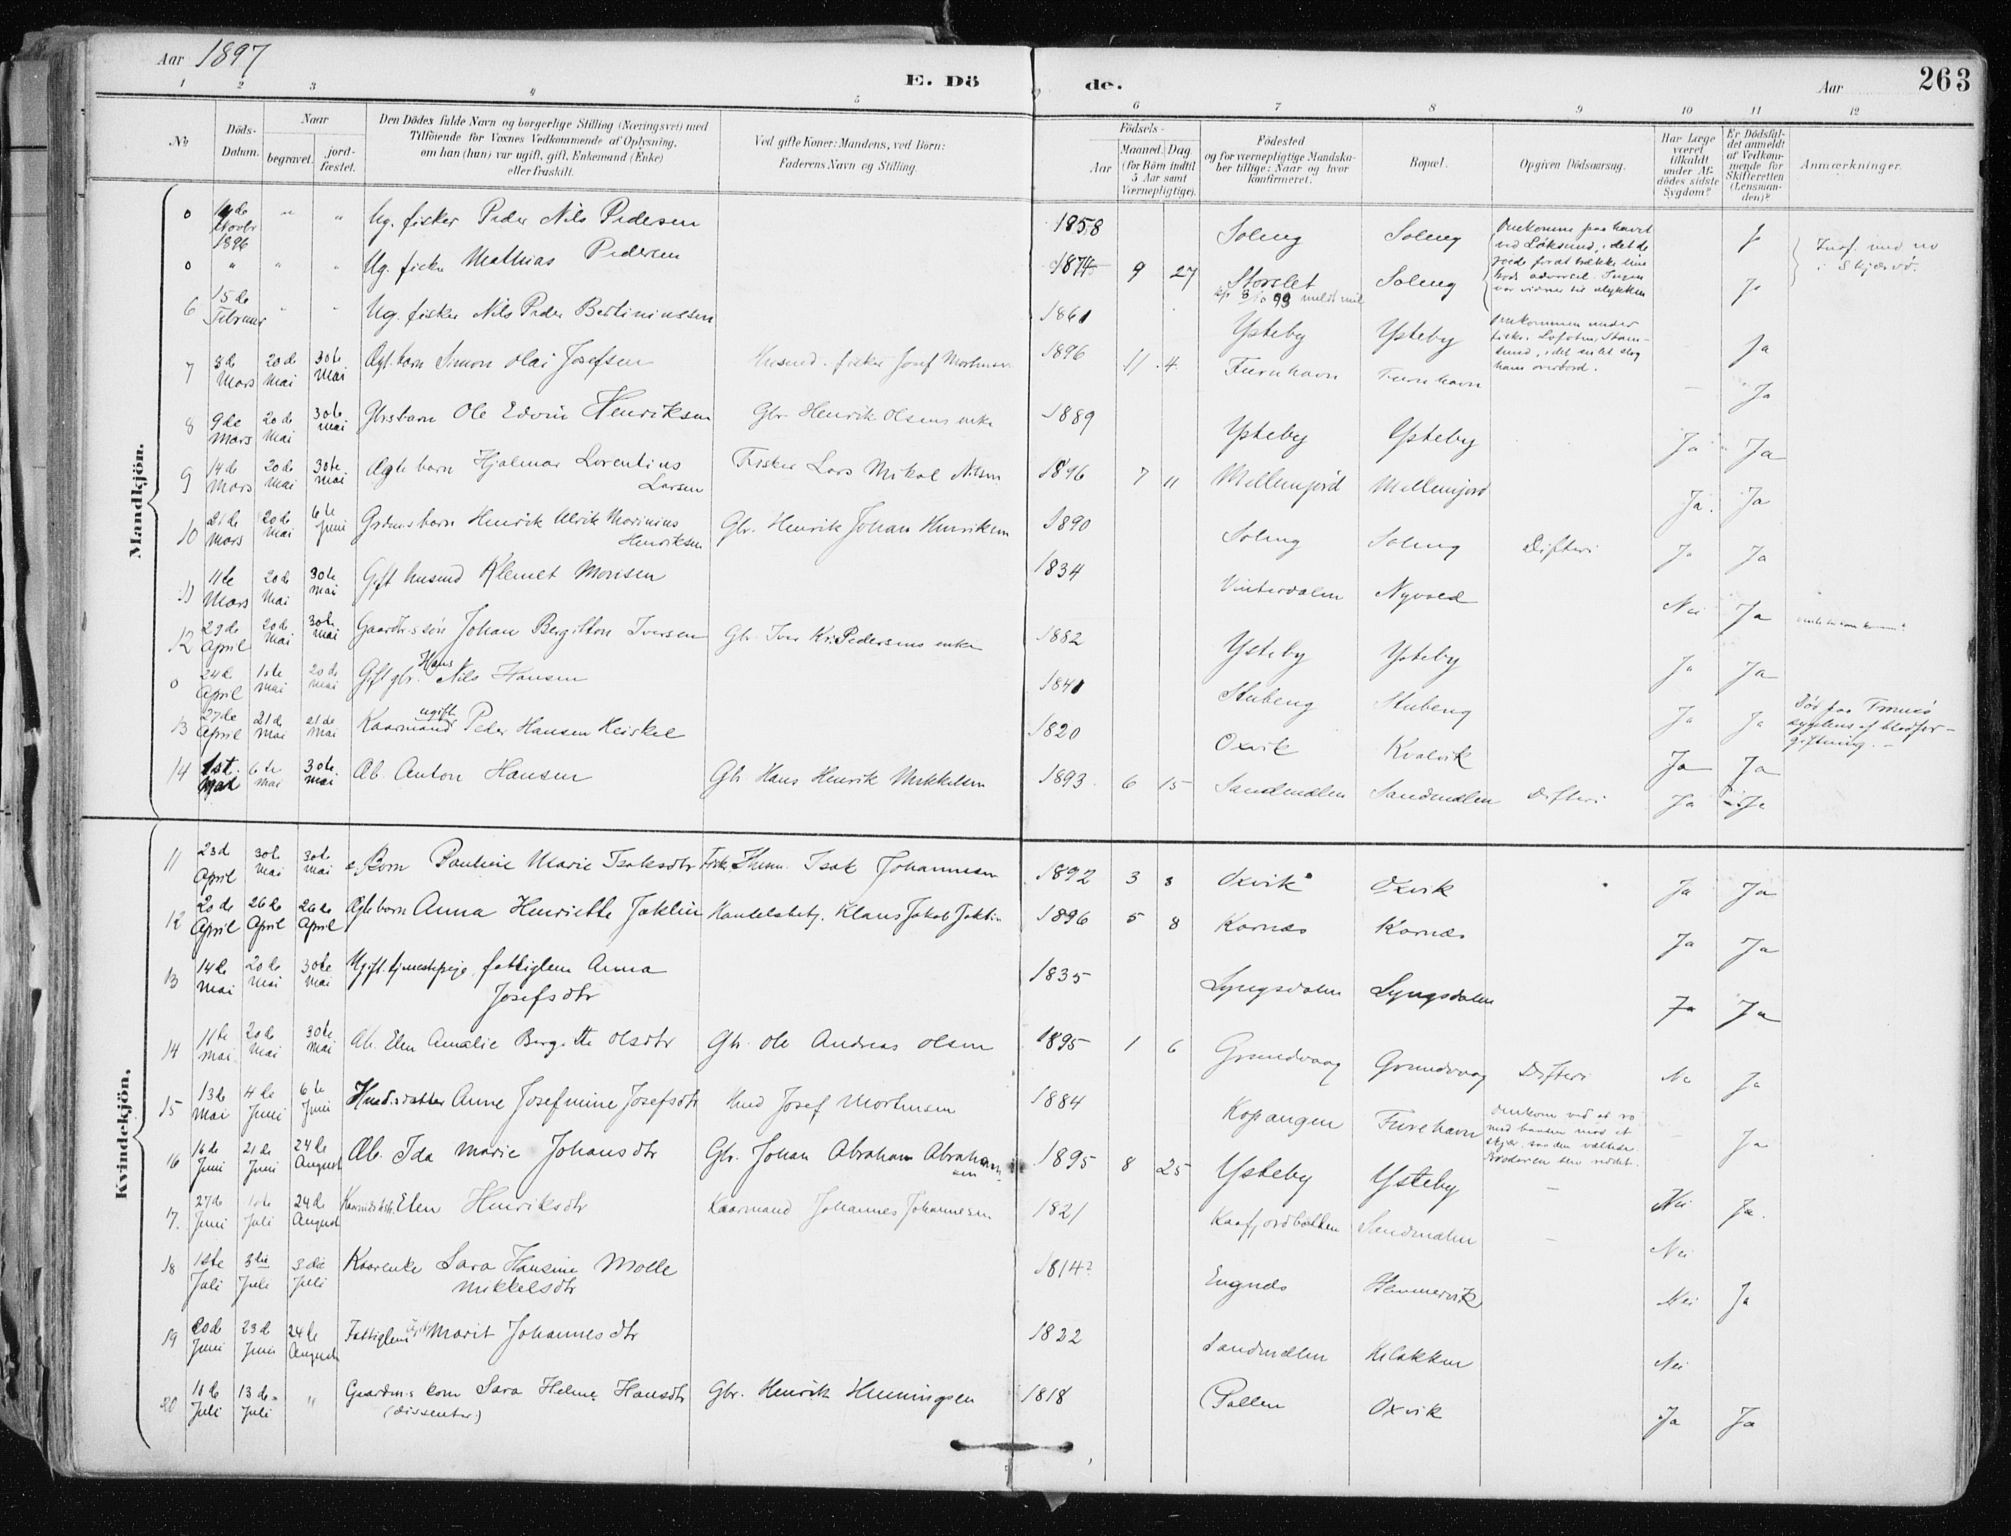 Aar 1897
E. Dö de.
Aar
263
1 2 3 4 5 6 7 8 9 10 11 12
No
Döds-Datum.
Naar
begravet.
jord-fæstet.
Den Dödes fulde Navn og borgerlige Stilling (Næringsvei) med
Tilföiende for Voxnes Vedkommende af Oplysning,
om han (hun) var ugift, gift, Enkemand (Enke)
eller fraskilt.
Ved gifte Koner: Mandens, ved Börn:
Faderens Navn og Stilling.
Födsels-
Aar
Maaned. Dag
(for Börn indtil
5 Aar samt
Værnepligtige).
Födested
og for værnepligtige Mandska-
ber tillige: Naar og hvor
konfirmeret.
Bopæl.
Opgiven Dödsaarsag.
Har Læge
været
tilkaldt
under Af-
dödes sidste
Sygdom?
Er Dödsfal-
det anmeldt
af Vedkom-
mende for
Skifteretten
(Lensman-
den)?
Anmærkninger.
Mandkjön.
0 Novbr 1896 " " Ug. fisker Peder Nils Pedersen 1858 Soleng Soleng Ja
0 " " " Ug. fisker Mathias Pedersen 1874 9 27 Storslet Soleng Ja
6 15de Februar " " Ug. fisker Nils Peder Bertiniussen 1861 Ysteby Ysteby Ja
7 3de Mars 20de Mai 30te Mai Ægt. barn Simon Olai Josefsen Husmd. fisker Josef Mortensen 1896 11 4 Furuhavn Furuhavn – Ja
8 9de Mars 20de Mai 30te Mai Gbrsbarn Ole Edvin Henriksen Gbr. Henrik Olsens enke 1889 Ysteby Ysteby Ja Ja
9 14de Mars 20de Mai 30te Mai Ægte barn Hjalmar Lorentius Larsen Fisker Lars Mikal Nilsen 1896 7 11 Mellemjord Mellemjord Ja. Ja
10 21de Mars 20de Mai 6te Juni Grdms barn Henrik Ulrik Marinius Henriksen Gbr. Henrik Johan Henriksen 1890 Soleng Soleng Difteri Ja Ja
11 11te Mars 20de Mai 30te Mai Gift husmd Klemet Monsen 1834 Vinterdalen Nyvold Nei Ja
12 29de April 20de Mai 30te Mai Gaardbr.søn Johan Bergitton Iversen Gbr. Iver Kr. Pedersens enke 1882 Ysteby Ysteby Ja Ja
0 24de April 10te Mai 20de Mai Gift gbr. Hans Nils Hansen 1841 Stubeng Stubeng Ja Ja
13 27de April 21de Mai 21de Mai Kaarmand ugift Peder Hansen Heiskel 1820 Oxvik Kvalvik Ja Ja
14 1st. Mai 6te Mai 30te Mai Æb. Anton Hansen Gbr. Hans Henrik Mikkelsen 1893. 6 15 Sandmælen Sandmælen Difteri Ja Ja
Kvindekjön.
11 23d April 30te Mai 30te Mai e. Barn Pauline Marie Isaksdtr Isak Johannesen 1892 3 3 Oxvik Oxvik Ja Ja
12 20de April 26de April 26de April Ægte barn Anna Henriette Jæklin Handelsbetj. Klaus Jakob Jæklin 1896 5 8 Karnæs Karnæs Ja Ja
13 14de Mai 20de Mai 30te Mai Ugift tjenestepige, fattiglem Anna Josefsdtr 1835 Lyngsdalen Lyngsdalen Ja Ja
14 11te Mai 20de Mai 30te Mai Æb. Elen Amalie Bergitte Olsdtr Gbr. Ole Andreas Olsen 1895 1 6 Grundvaag Grundvaag Difteri Nei Ja
15 13de Mai 4de Juni 6te Juni Husmdsdatter Anne Josefmine Josefsdtr Husmd Josef Mortensen 1884 Kopangen Furehavn – Ja
16 16de Juni 21de Juni 24de August Æb. Ida Marie Johansdtr Gbr. Johan Abraham Abrahamsen 1895 8 25 Ysteby Ysteby – Nei Ja.
17. 27de Juni Juli 24de August Elen Henriksdtr Kaarmand Johannes Johannesen 1821 Kaafjordbotten Sandmælen – Nei
18 1ste Juli 3die Juli 3die Juli Kaarenke Sara Hansine Molle Mikkelsdtr 1814? Engnæs Hammervik Nei Ja
19 20de Juni 23de Juni 24de August Fattiglem Marit Johannesdtr 1822 Sandmælen Kilakken Nei
20 10de Juli 13de Juli " Gaardm.s kone Sara Helene Hansdtr (dissenter) Gbr. Henrik Henningsen 1818 Pollen Oxvik Ja Ja